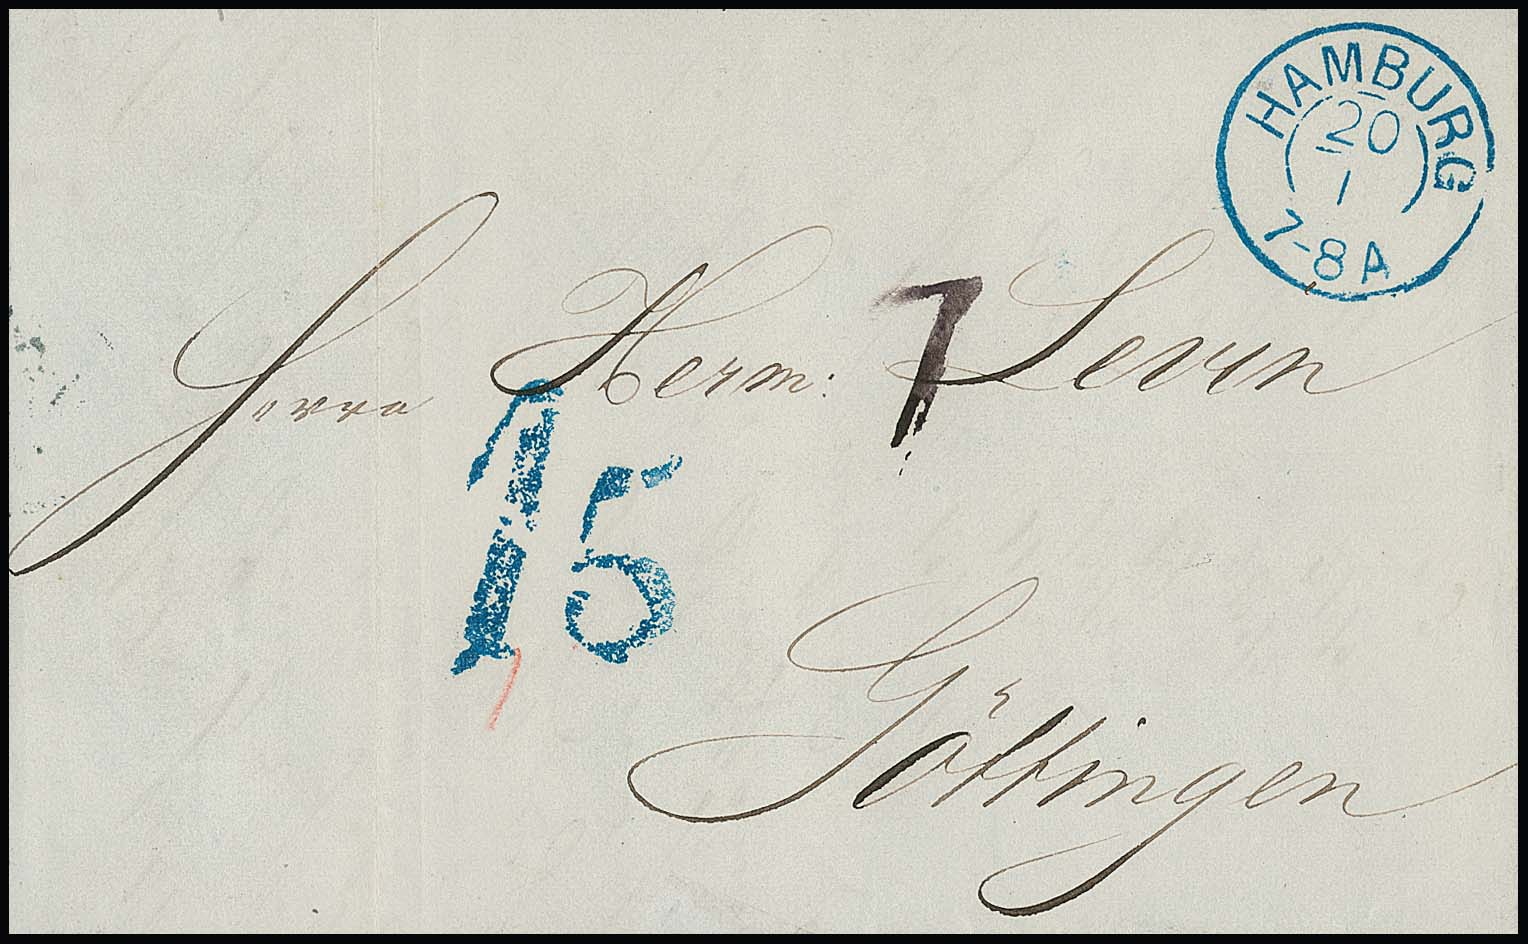 HAMBURG
20
1
7-8A
Herrn Herm: Levin
7
15
Göttingen